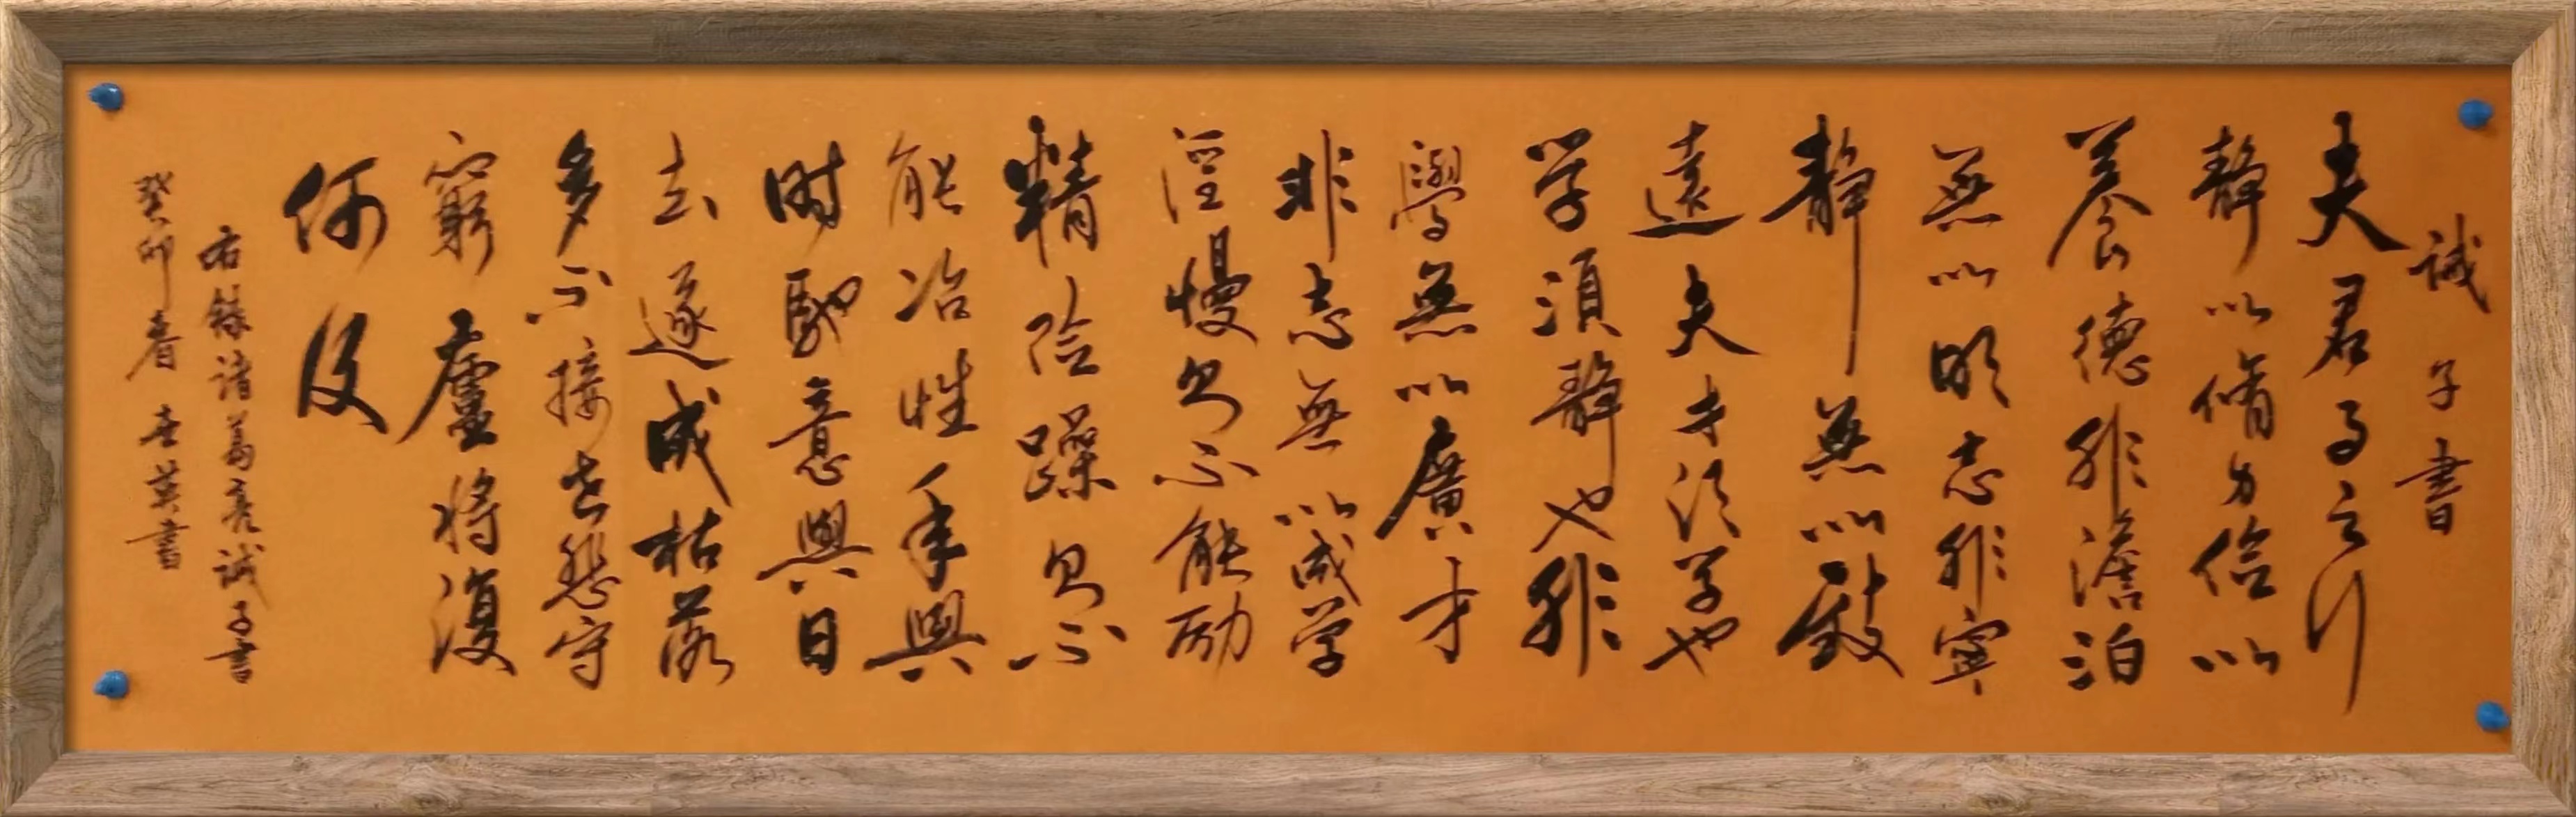 诫子書
夫君子之行
静以脩身俭以
養德非澹泊
無以明志非寧
静無以致
遠夫才须学也
学須静也非
學無以廣才
非志無以成学
淫慢则不能励
精险躁则不
能冶性年與
时馳意與日
去遂成枯落
多不接世悲守
窮廬将復
何及
右録诸葛亮诫子書
癸卯春英書